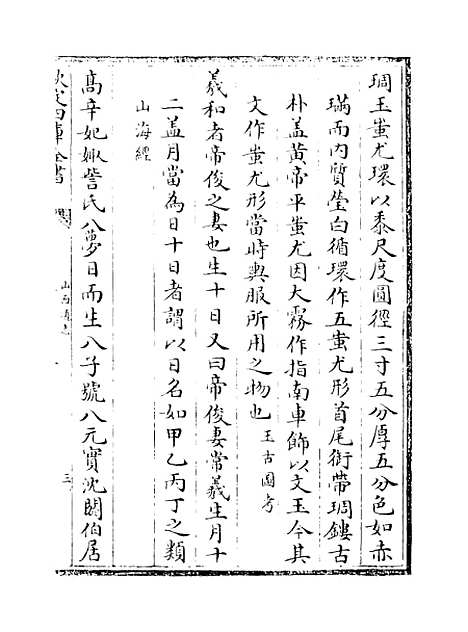 琱玉蚩尤環以黍尺度圓徑三寸五分厚五分色如赤
璊而内質瑩白循環作五蚩尤形首尾銜帶琱鏤古
朴盖黄帝平蚩尤因大霧作指南車飾以文玉今其
文作蚩尤形當時輿服所用之物也 王古圖考
羲和者帝俊之妻也生十日又曰帝俊妻常羲生月十
二盖月當為日十日者謂以日名如甲乙丙丁之類
山海經
高辛妃娵訾氏八夢日而生八子號八元實沈閼伯居
欽定四庫全書
山西通志
三